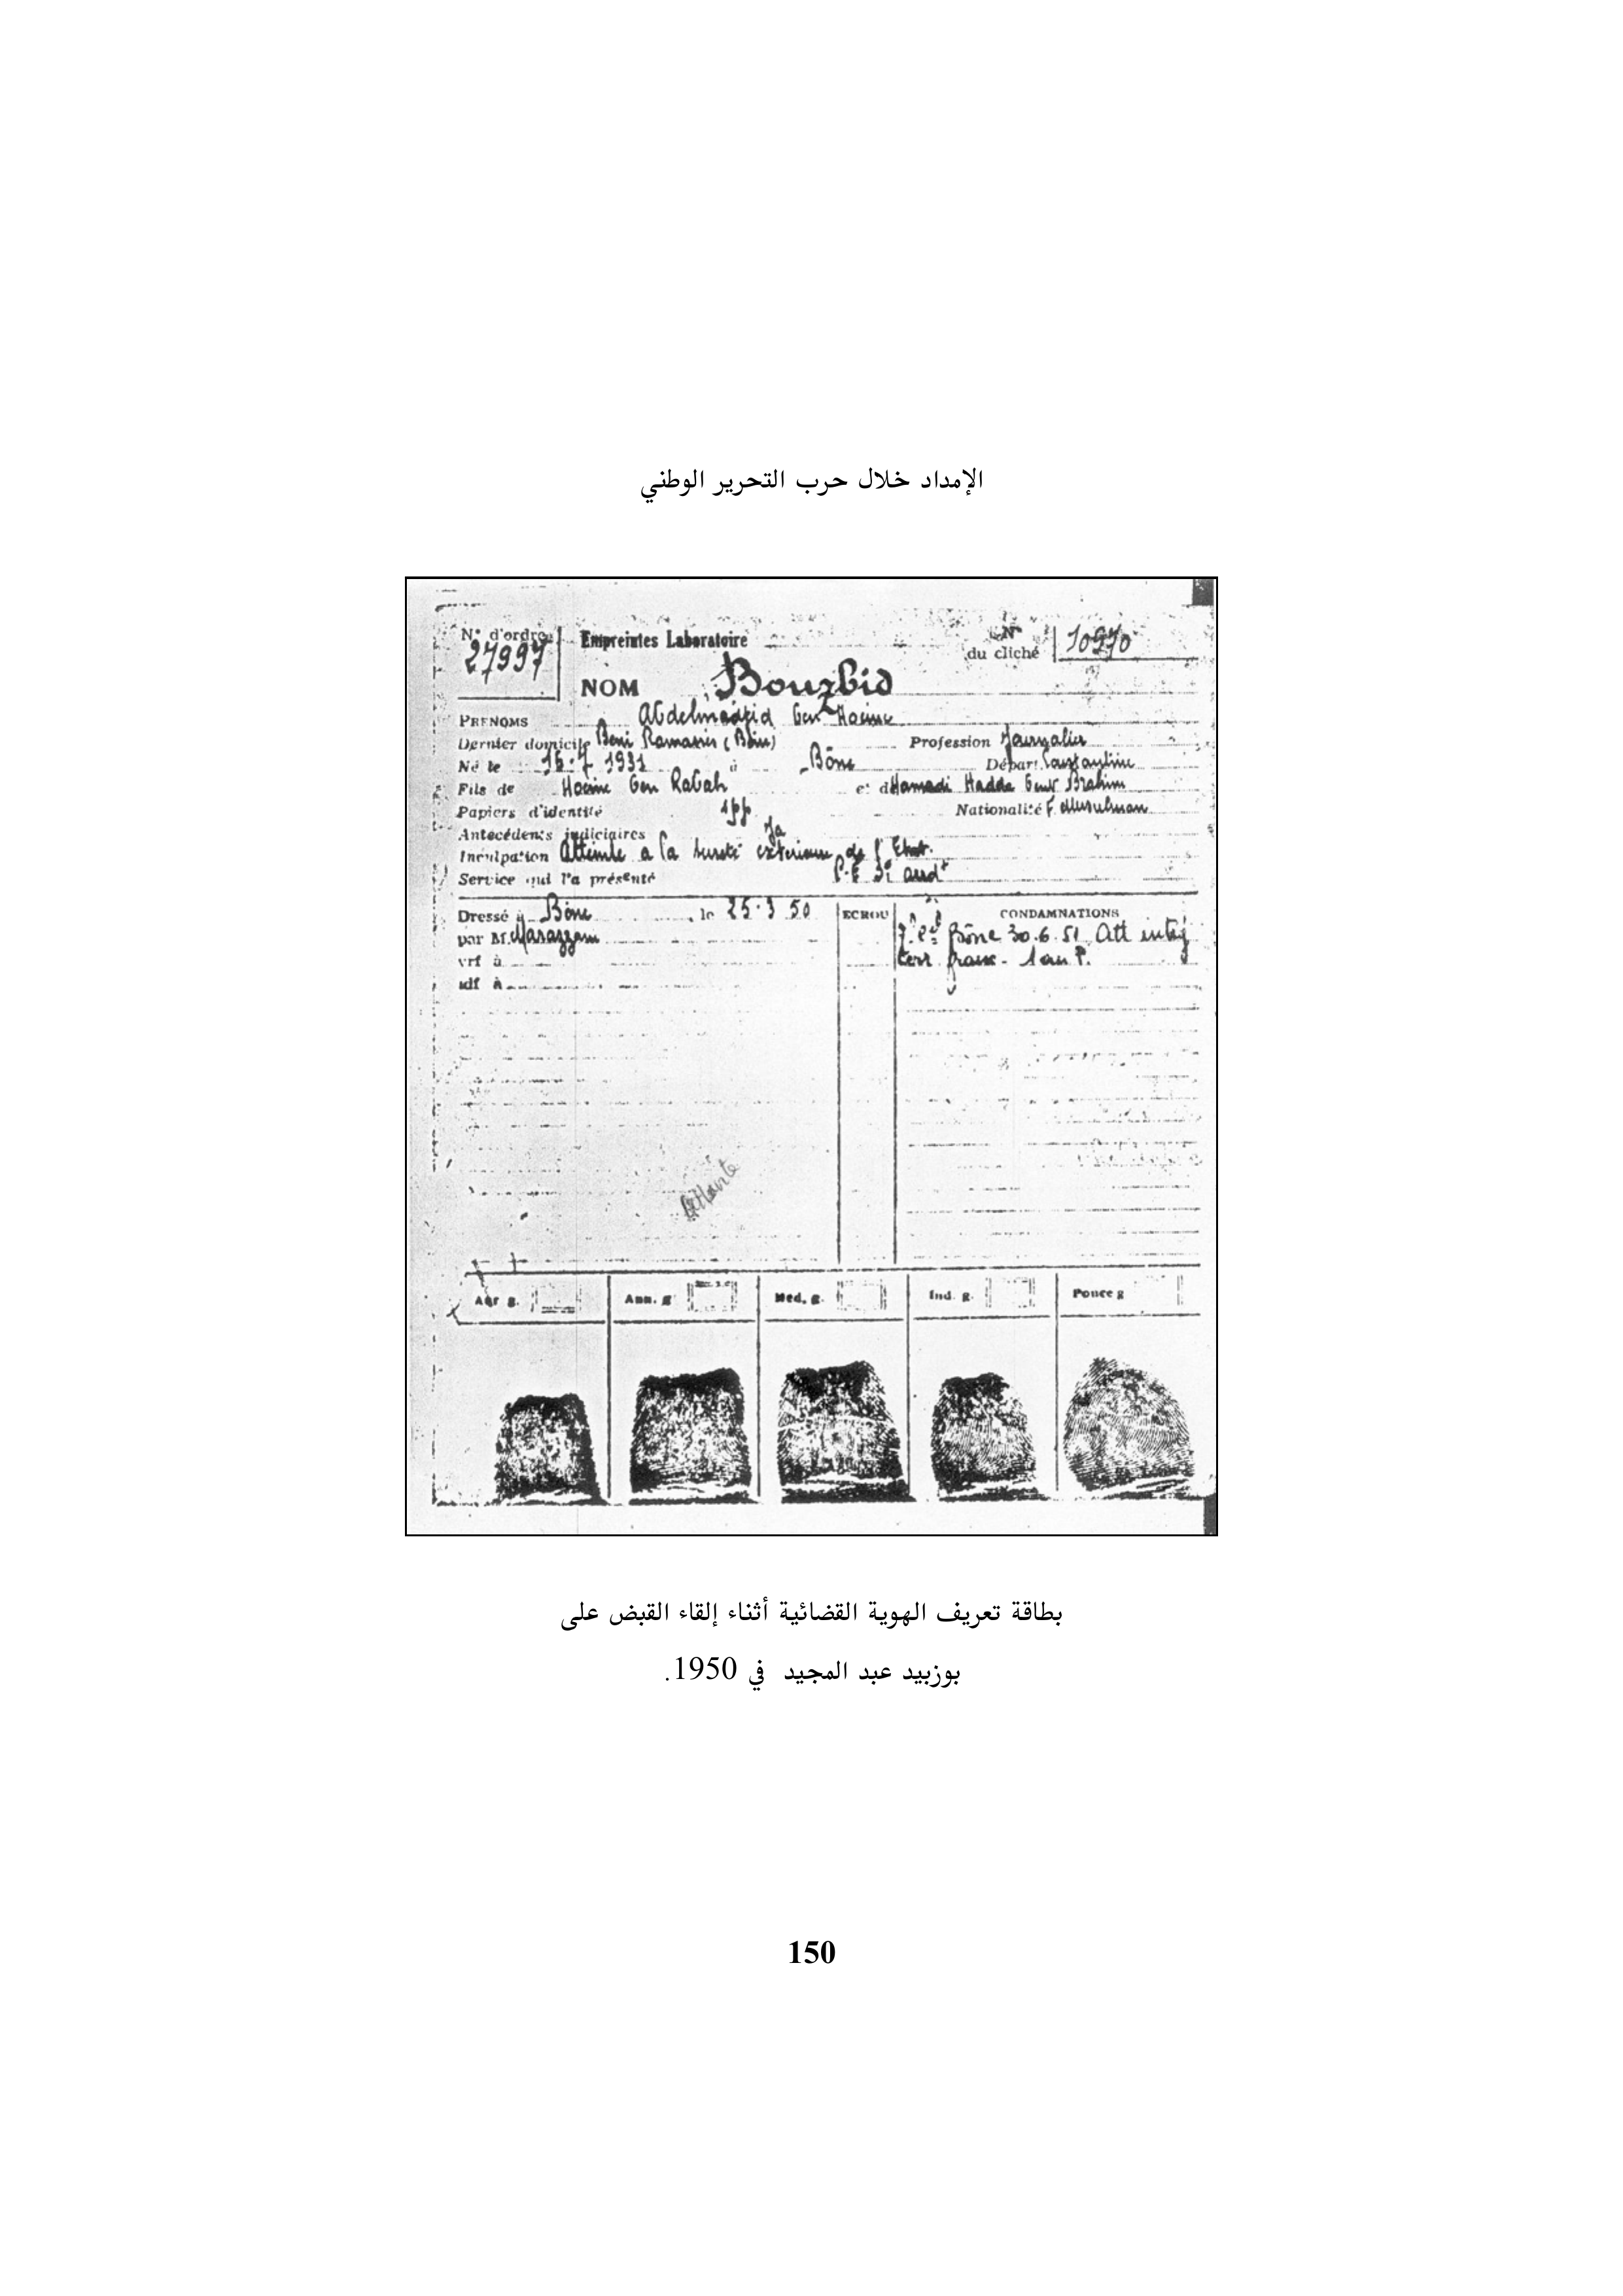 الإمداد خلال حرب التحرير الوطني
N° d'ordre Empreintes Laboratoire N° du cliché 10970
27997
NOM Bouzbid
PRENOMS Abdelmadjid ben Hocine
Dernier domicile Beni Ramassis (Bône) Profession Journalier
Né le 16.7.1931 à Bône Départ. Constantine
Fils de Hocine ben Rabah et d Hamadi Hadda bent Brahim
Papiers d'identité Nationalité F. Musulman
Antécédents judiciaires
Inculpation Atteinte a la sureté exterieure de l'Etat.
Service qui l'a présenté
Dressé à Bône, le 25.3.50 ECROU CONDAMNATIONS
par M. Bône 30.6.51 Att intég
vrf à terr franc - 1 an P.
idf à
Aur g. Ann. g Med. g. Ind. g. Pouce g
بطاقة تعريف الهوية القضائية أثناء إلقاء القبض على
بوزبيد عبد المجيد في 1950.
150